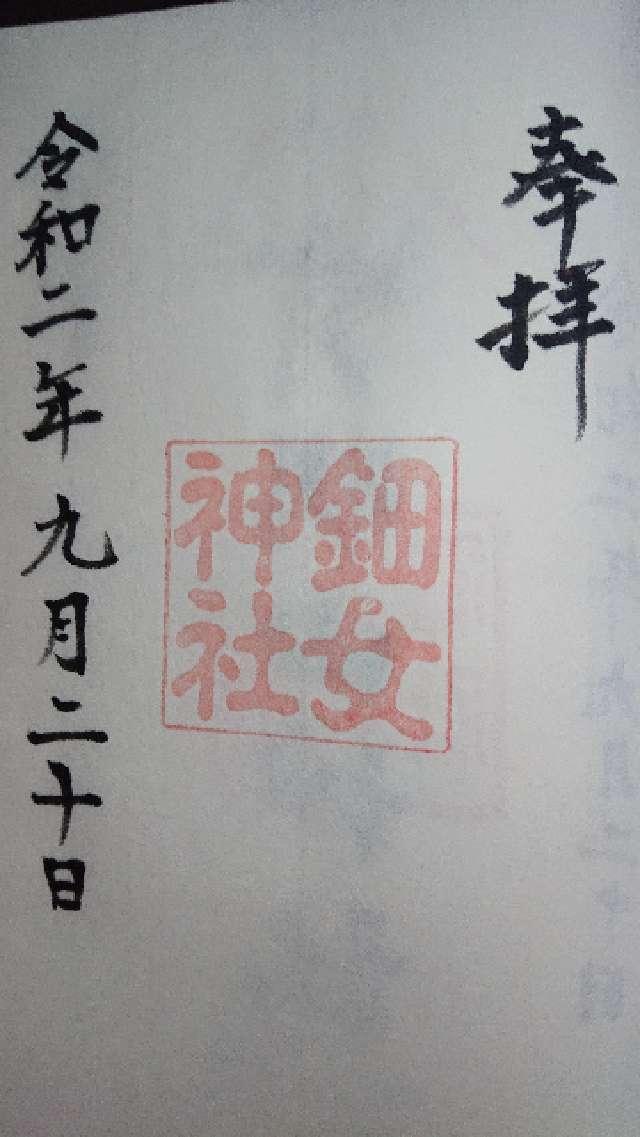 奉拝
鈿女
神社
令和二年九月二十日